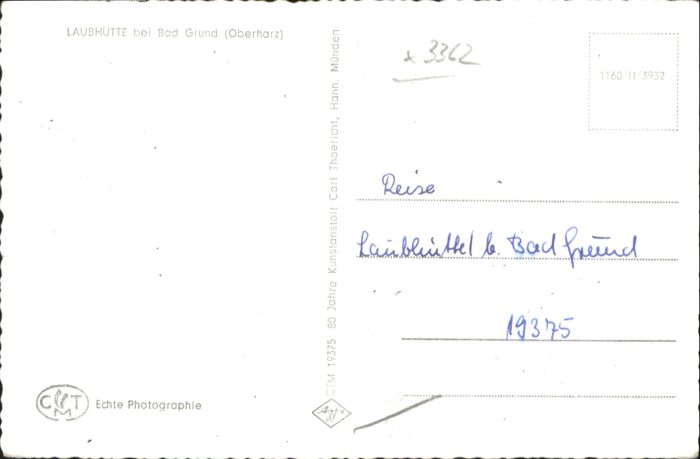 LAUBHÜTTE bei Bad Grund (Oberharz)
x 3362
1160/II/3932
CTM 19375 80 Jahre Kunstanstalt Carl Thoericht, Hann. Münden
Reise
Laubhüttel b. Bad Grund
19375
CTM
Echte Photographie
Agfa